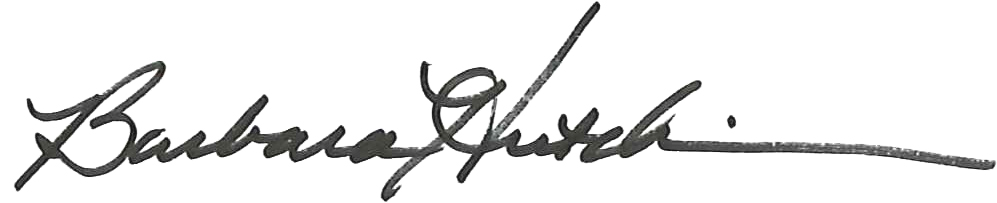 Barbara Hutchi